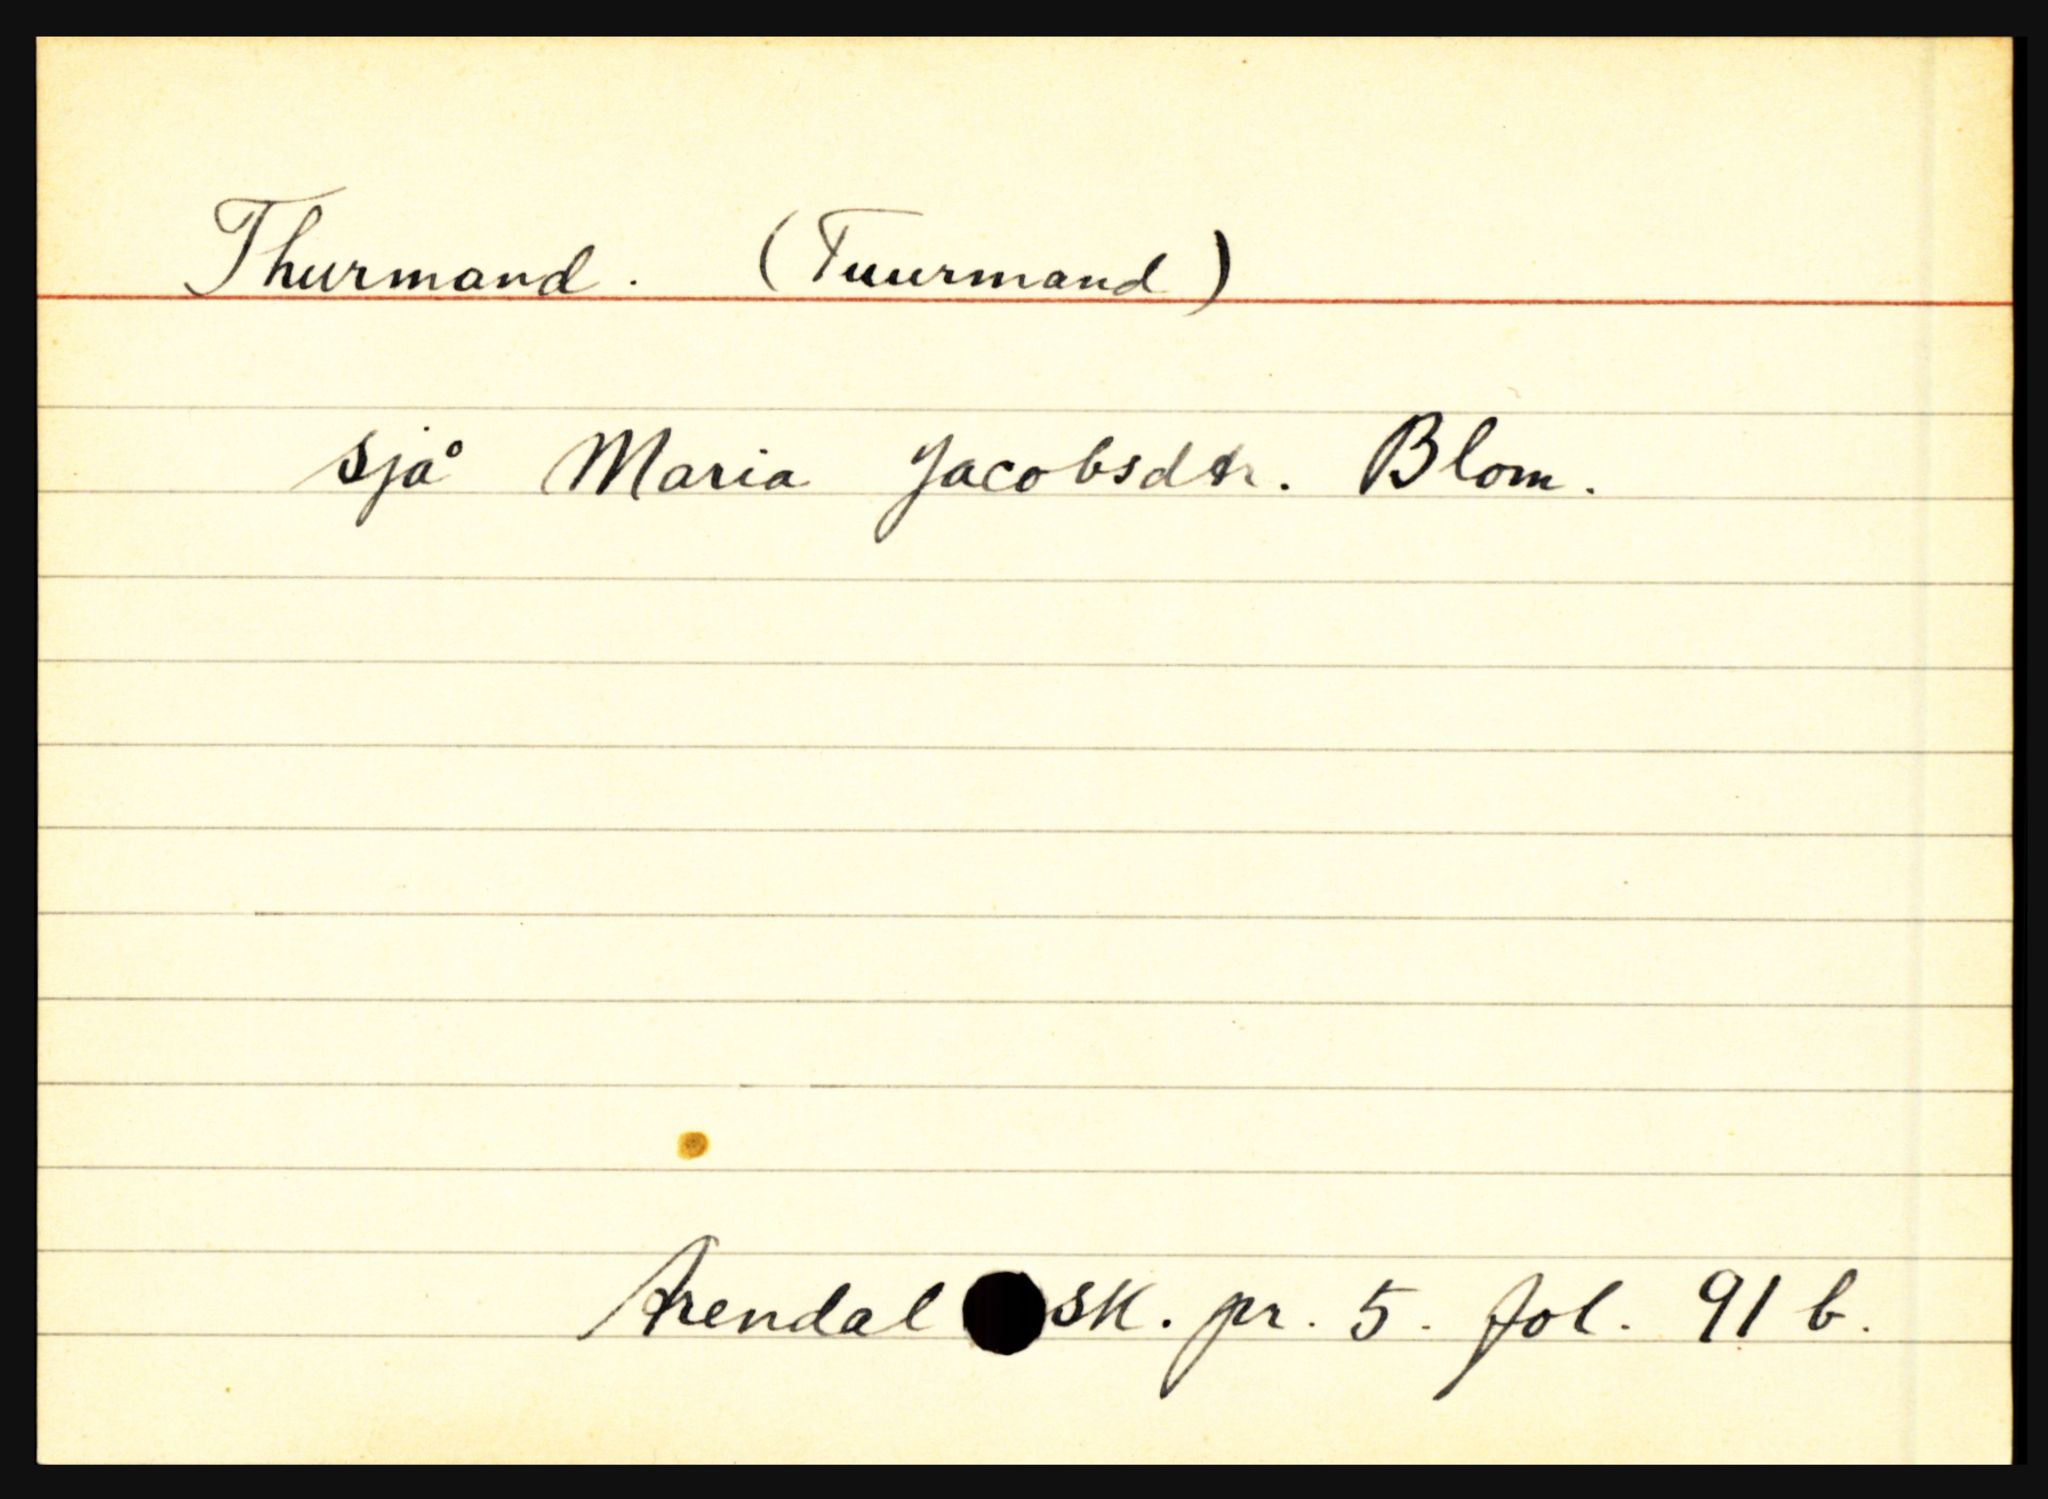 Thurmand. (Tuurmand)
sjå Maria Jacobsdtr. Blom.
Arendal sk. pr. 5. fol. 91 b.